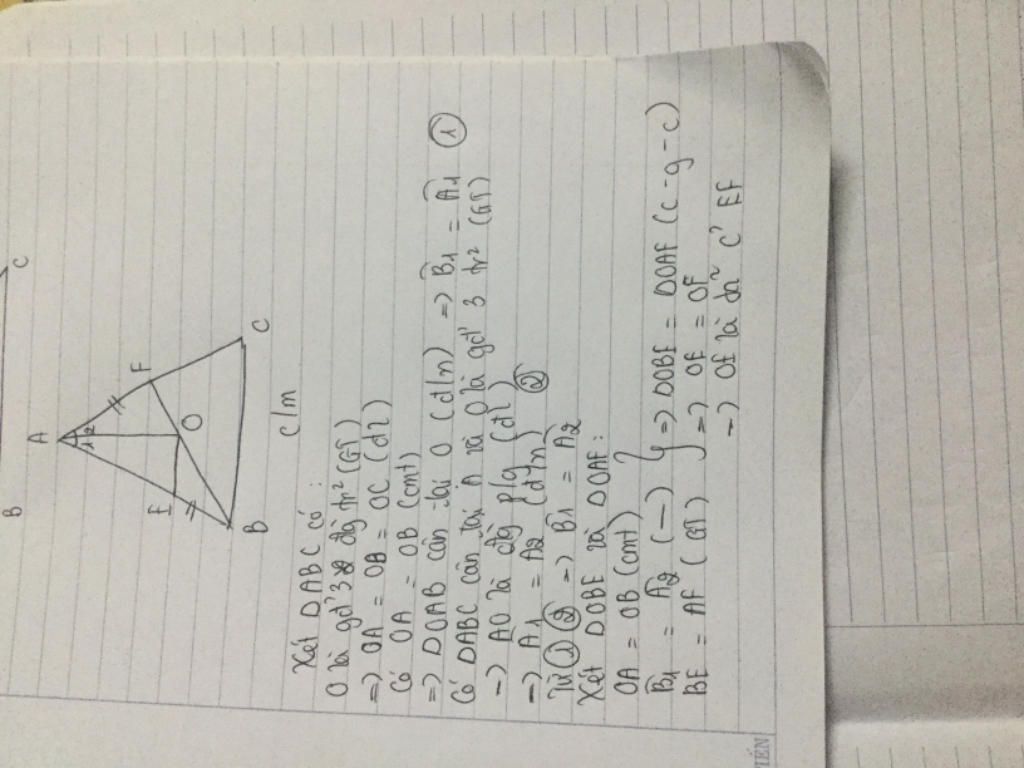 B
C
A
1 2
E
F
O
B
C
c/m
Xét DABC có:
O là gđ' 3 đg̀ tr² (GT)
=) OA = OB = OC (dl)
Có OA = OB (cmt)
=) DOAB cân tại O (đ/n) => B1 = A1 ①
Có DABC cân tại A và O là gđ' 3 tr² (GT)
-) AO là đg̀ p/g (dl)
-) A1 = A2 (đ/n) ②
Từ ① ② -) B1 = A2
Xét DOBE và DOAF:
OA = OB (cmt)
B1 = A2 (—) } => DOBE = DOAF (c-g-c)
BE = AF (GT) =) OE = OF
-) OE và c' EF
IẾN